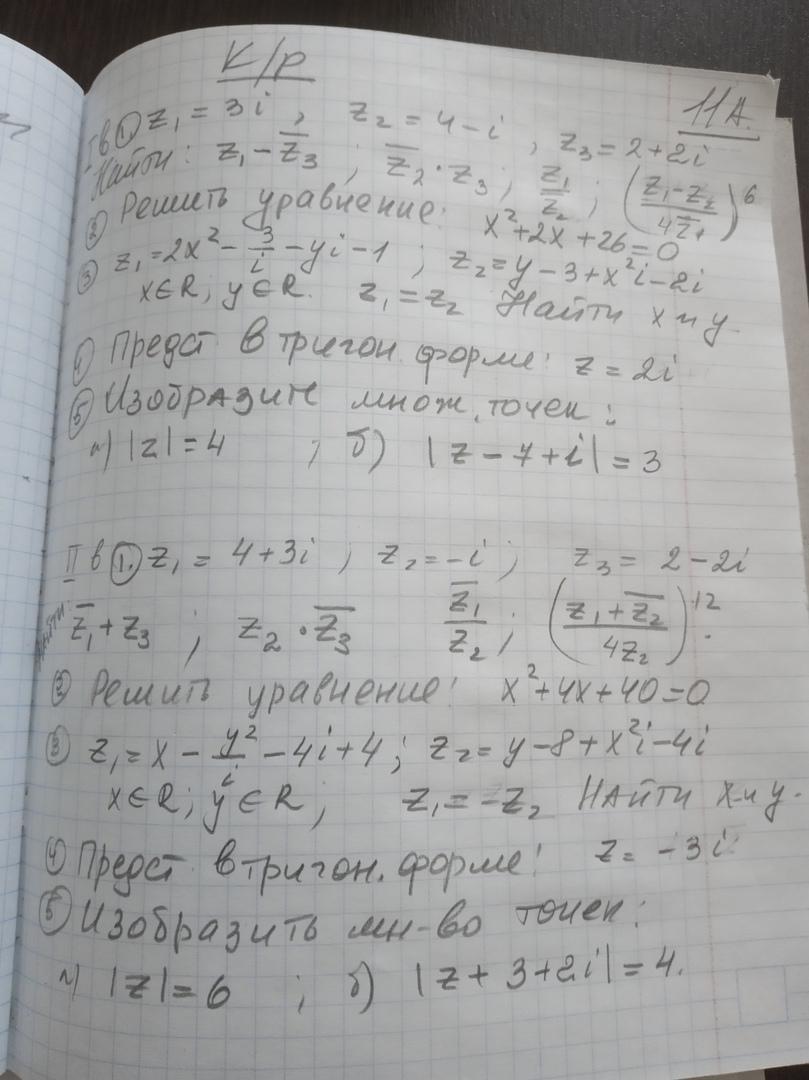 К/р
11А.
I в ① z₁ = 3i , z₂ = 4 - i , z₃ = 2 + 2i
Найти: z₁ - z̅₃ ; z̅₂ · z₃ ; z₁/z₂ ; ((z₁ - z₂)/(4z̅₁))⁶
② Решить уравнение: x² + 2x + 26 = 0
③ z₁ = 2x² - 3/i - yi - 1 ; z₂ = y - 3 + x²i - 2i
x ∈ R; y ∈ R. z₁ = z₂ Найти x и y.
④ Предст в тригон. форме: z = 2i
⑤ Изобразить множ. точек:
а) |z| = 4 ; б) |z - 7 + i| = 3
II в ①. z₁ = 4 + 3i ; z₂ = -i ; z₃ = 2 - 2i
Найти: z̅₁ + z₃ ; z₂ · z̅₃ z̅₁/z₂ ; ((z₁ + z̅₂)/(4z₂))¹².
② Решить уравнение: x² + 4x + 40 = 0
③ z₁ = x - y²/i - 4i + 4 ; z₂ = y - 8 + x²i - 4i
x ∈ R; y ∈ R ; z₁ = -z₂ Найти x и y.
④ Предст в тригон. форме: z = -3i
⑤ Изобразить мн-во точек:
а) |z| = 6 ; б) |z + 3 + 2i| = 4.